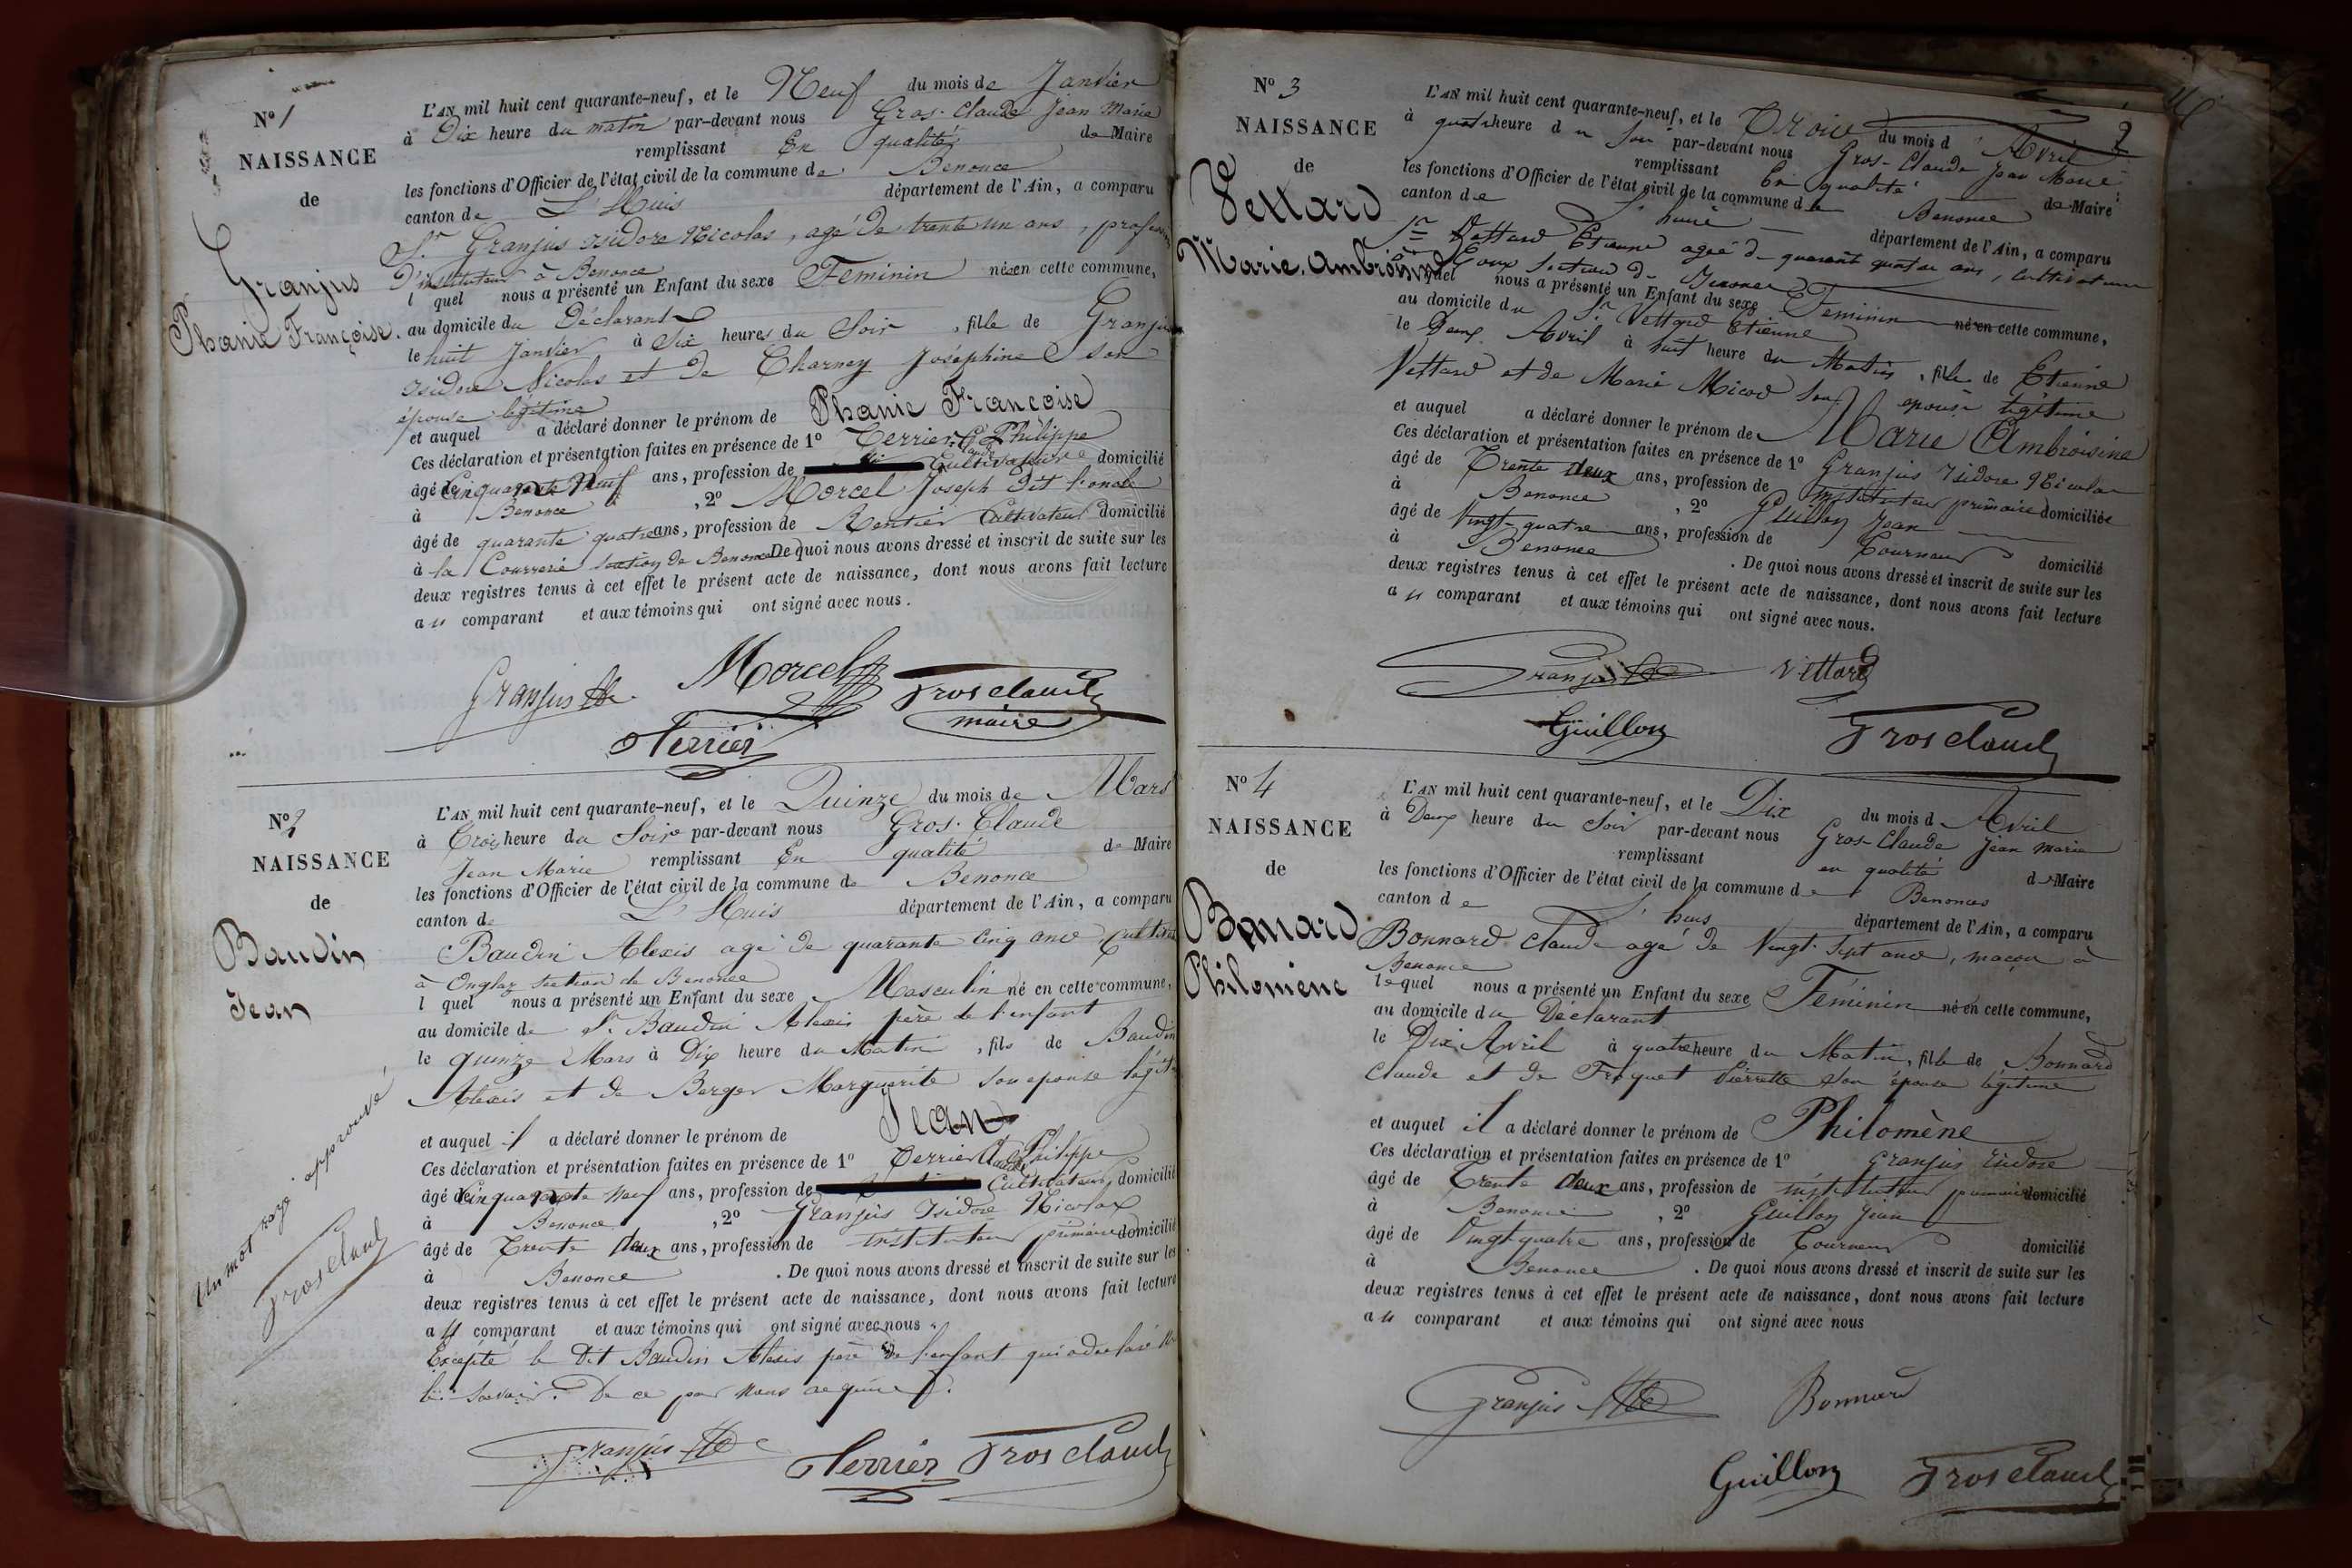 N° 1
NAISSANCE
de
Granjus
Phanie Françoise.
L'AN mil huit cent quarante-neuf, et le Neuf du mois de Janvier
à Dix heure du matin par-devant nous Gros-Claude Jean Marie
remplissant En qualité de Maire
les fonctions d'Officier de l'état civil de la commune de Benonce
canton de L'Huis département de l'Ain, a comparu
Sr Granjus isidore Nicolas, agé de trente un ans, profession
d'instituteur à Benonce
l quel nous a présenté un Enfant du sexe Feminin née en cette commune,
au domicile du Déclarant
le huit Janvier à Six heures du Soir, fille de Granjus
isidore Nicolas et de Charney Joséphine son
épouse légitime
et auquel a déclaré donner le prénom de Phanie Françoise
Ces déclaration et présentation faites en présence de 1° Terrier Claude Philippe
âgé de Cinquante Neuf ans, profession de Cultivateur domicilié
à Benonce, 2° Morcel Joseph dit l'oncle
âgé de quarante quatre ans, profession de Rentier Cultivateur domicilié
à la Courrerie Section de Benonce De quoi nous avons dressé et inscrit de suite sur les
deux registres tenus à cet effet le présent acte de naissance, dont nous avons fait lecture
au comparant et aux témoins qui ont signé avec nous.
Granjus
Morcel
Grosclaude
maire
Terrier
N° 2
NAISSANCE
de
Baudin
Jean
Un mot rayé approuvé
Grosclaude
L'AN mil huit cent quarante-neuf, et le Quinze du mois de Mars
à Trois heure du Soir par-devant nous Gros-Claude
Jean Marie remplissant En qualité de Maire
les fonctions d'Officier de l'état civil de la commune de Benonce
canton de L'Huis département de l'Ain, a comparu
Baudin Alexis agé de quarante Cinq ans, Cultiva
à Onglas Section de Benonce
l quel nous a présenté un Enfant du sexe Masculin né en cette commune,
au domicile de Sr Baudin Alexis père de l'enfant
le quinze Mars à Dix heure du Matin, fils de Baudin
Alexis et de Berger Marguerite son epouse légit
et auquel il a déclaré donner le prénom de Jean
Ces déclaration et présentation faites en présence de 1° Terrier Claude Philippe
âgé de Cinquante Neuf ans, profession de Cultivateur domicilié
à Benonce, 2° Granjus Isidore Nicolas
âgé de Trente deux ans, profession de instituteur primaire domicilié
à Benonce. De quoi nous avons dressé et inscrit de suite sur les
deux registres tenus à cet effet le présent acte de naissance, dont nous avons fait lecture
au comparant et aux témoins qui ont signé avec nous.
Excepté le Dit Baudin Alexis père de l'enfant qui a déclaré ne
le savoir. De ce par nous requis.
Granjus
Terrier
Grosclaude
2
N° 3
NAISSANCE
de
Vettard
Marie. Ambroisine
L'AN mil huit cent quarante-neuf, et le Trois du mois d Avril
à quatre heure du Soir par-devant nous Gros-Claude Jean Marie
remplissant En qualité de Maire
les fonctions d'Officier de l'état civil de la commune de Benonce
canton de L'huis département de l'Ain, a comparu
Sr Vettard Etienne ageé de quarante quatre ans, Cultivateur
Section de Benonce
lequel nous a présenté un Enfant du sexe Feminin né en cette commune,
au domicile du Sr Vettard Etienne
le Deux Avril à huit heure du Matin, fille de Etienne
Vettard et de Marie Micod Son epouse légitime
et auquel a déclaré donner le prénom de Marie Ambroisine
Ces déclaration et présentation faites en présence de 1° Granjus isidore Nicolas
âgé de Trente deux ans, profession de instituteur primaire domicilié
à Benonce, 2° Guillon Jean
âgé de Vingt-quatre ans, profession de Tourneur domicilié
à Benonce. De quoi nous avons dressé et inscrit de suite sur les
deux registres tenus à cet effet le présent acte de naissance, dont nous avons fait lecture
au comparant et aux témoins qui ont signé avec nous.
Granjus
Vettard
Guillon
Grosclaude
N° 4
NAISSANCE
de
Bonnard
Philomène
L'AN mil huit cent quarante-neuf, et le Dix du mois d Avril
à Deux heure du Soir par-devant nous Gros-Claude Jean Marie
remplissant en qualité de Maire
les fonctions d'Officier de l'état civil de la commune de Benonces
canton de L'huis département de l'Ain, a comparu
Bonnard Claude agé de Vingt-Sept ans, maçon à
Benonce
lequel nous a présenté un Enfant du sexe Féminin né en cette commune,
au domicile du Déclarant
le Dix Avril à quatre heure du Matin, fille de Bonnard
Claude et de Troquet Pierrette son épouse légitime
et auquel il a déclaré donner le prénom de Philomène
Ces déclaration et présentation faites en présence de 1° Granjus isidore
âgé de Trente deux ans, profession de instituteur primaire domicilié
à Benonce, 2° Guillon Jean
âgé de Vingt quatre ans, profession de Tourneur domicilié
à Benonce. De quoi nous avons dressé et inscrit de suite sur les
deux registres tenus à cet effet le présent acte de naissance, dont nous avons fait lecture
au comparant et aux témoins qui ont signé avec nous
Granjus
Bonnard
Guillon
Grosclaude